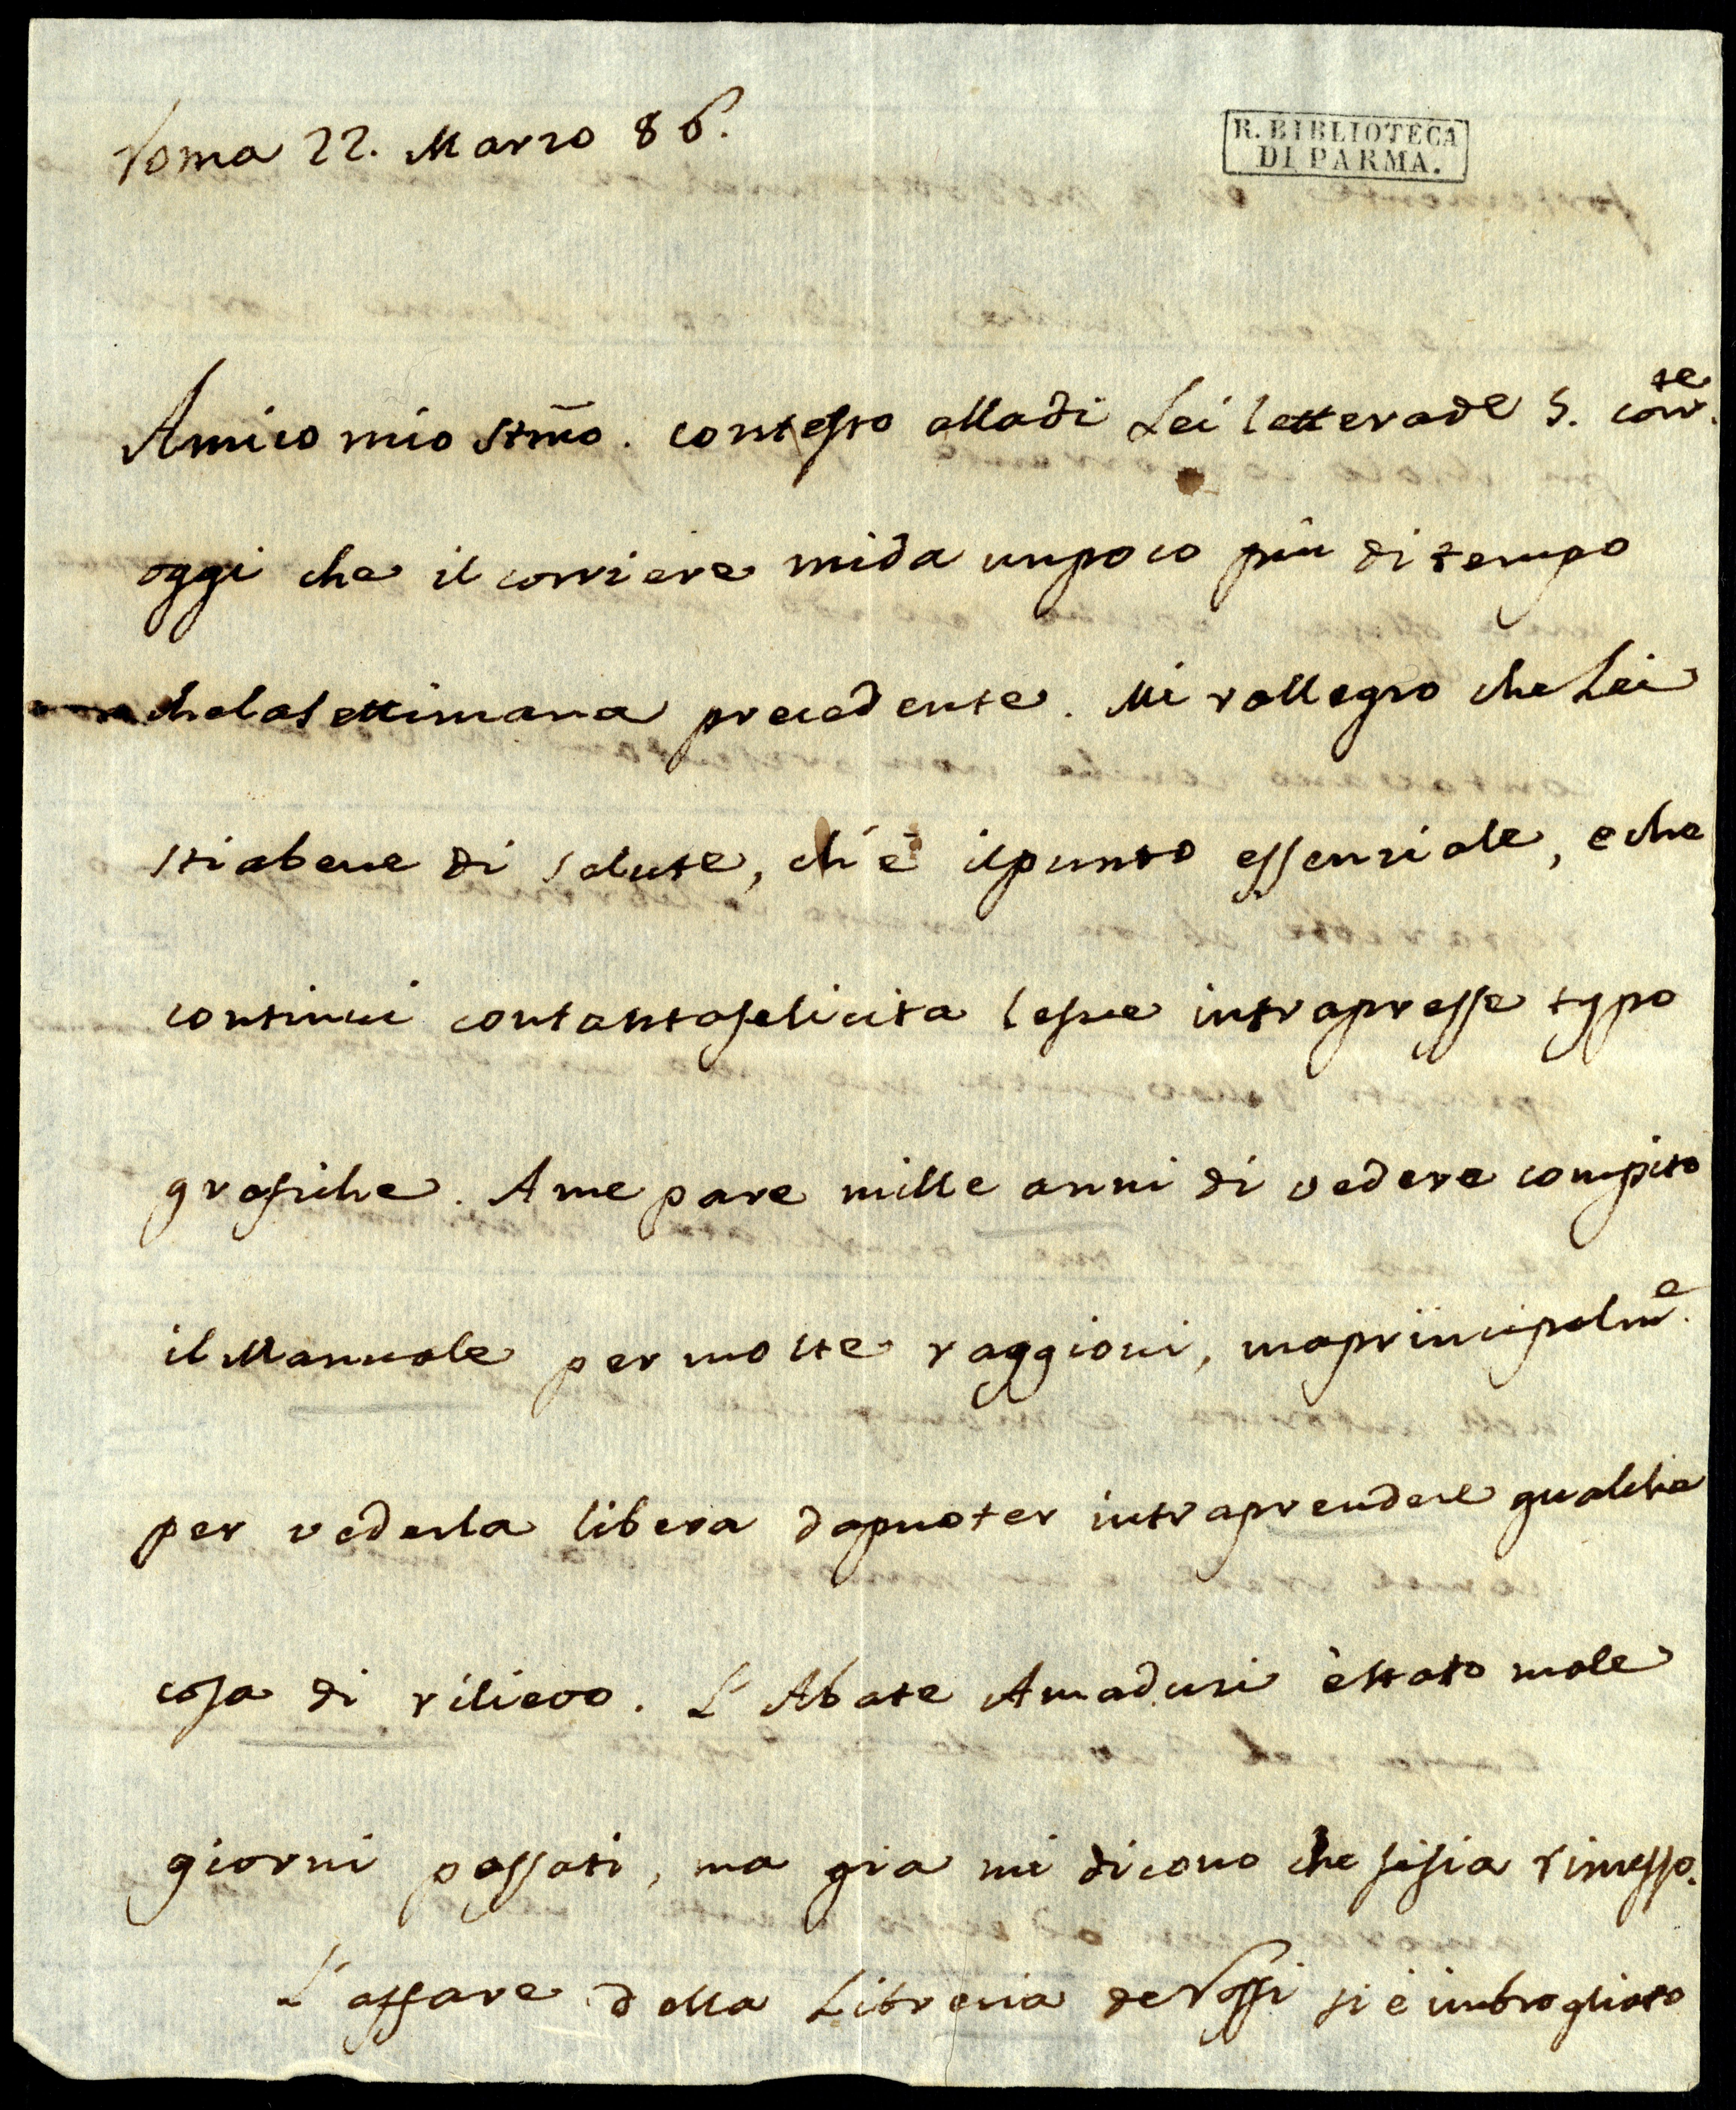 Roma 22. Marzo 86.
R. BIBLIOTECA
DI PARMA.
Amico mio Stmo. contesto alla di Lei lettera de 5. corr.te
oggi che il corriere mi da un poco più di tempo
che la settimana precedente. Mi rallegro che Lei
stia bene di salute, ch'è il punto essenziale, e che
continui con tanta felicita le sue intrapresse typo
grafiche. A me pare mille anni di vedere compito
il Manuale per molte raggioni, ma principalm.e
per vederla libera da puoter intraprendere qualche
cosa di rilievo. L'Abate Amaduzi è stato male
giorni passati, ma gia mi dicono che si sia rimesso.
L'affare della Libreria de Rossi si è imbrogliato